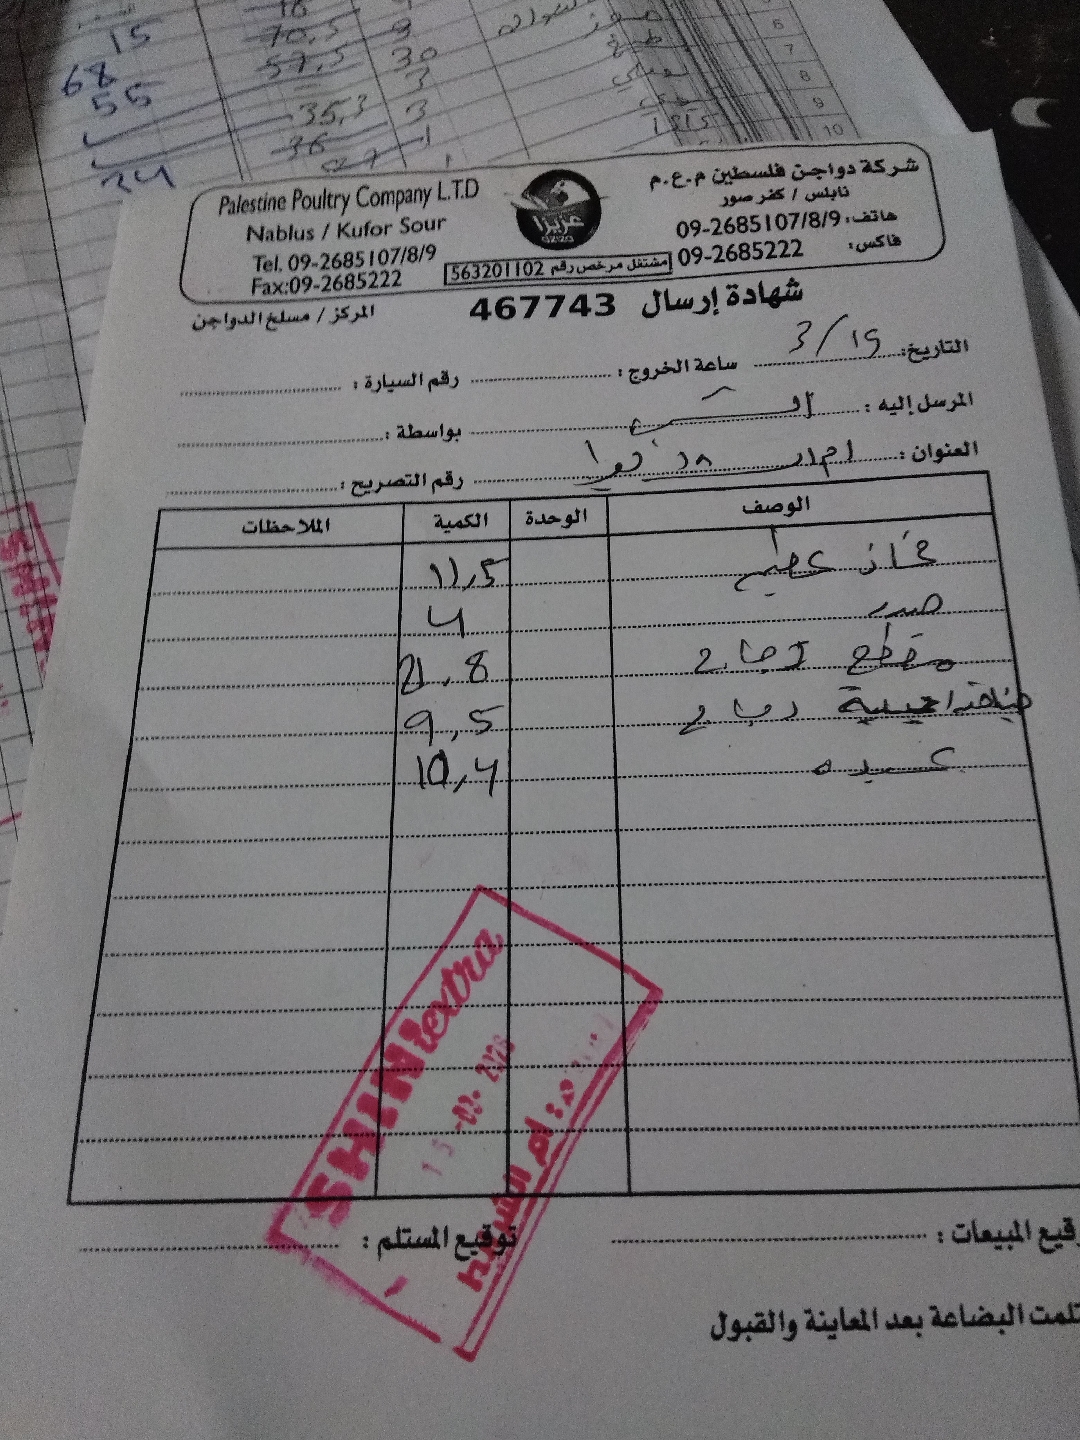 15
68
55
24
70,5
57,5
35,3
36
27
9
30
3
3
1
6
7
8
9
10
Palestine Poultry Company L.T.D
Nablus / Kufor Sour
Tel. 09-2685107/8/9
Fax:09-2685222
عزيزا
شركة دواجن فلسطين م.ع.م
نابلس / كفر صور
هاتف: 09-2685107/8/9
فاكس: 09-2685222
مشتغل مرخص رقم 563201102
شهادة إرسال 467743
المركز / مسلخ الدواجن
التاريخ: 3/15 ساعة الخروج: رقم السيارة:
المرسل إليه: بواسطة:
العنوان: ام الشرايط رقم التصريح:
الوصف الوحدة الكمية الملاحظات
11,5
صدر 4
مقطع دجاج 21,8
دجاج 9,5
كبده 10,4
SHINI extra
15-03-2026
م: ام الشرايط
توقيع المبيعات: توقيع المستلم:
تلمت البضاعة بعد المعاينة والقبول